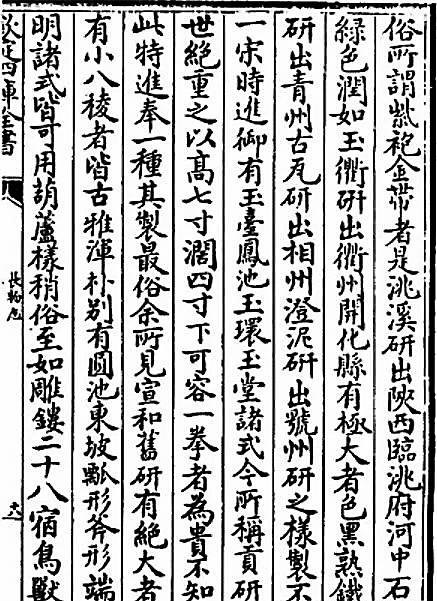 俗所謂紫袍金帶者是洮溪研出陝西臨洮府河中石
綠色潤如玉衢研出衢州開化縣有極大者色黑熟鐵
研出青州古瓦研出相州澄泥研出虢州研之樣製不
一宋時進御有玉臺鳳池玉環玉堂諸式今所稱貢研
世絕重之以高七寸濶四寸下可容一拳者為貴不知
此特進奉一種其製最俗余所見宣和舊研有絕大者
有小八稜者皆古雅渾朴別有圓池東坡瓢形斧形端
明諸式皆可用葫蘆樣稍俗至如雕鏤二十八宿鳥獸
欽定四庫全書
長物志